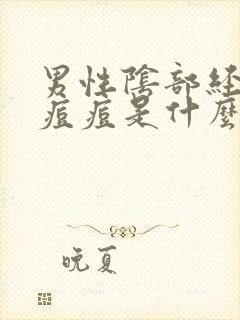 男性陰部經
痘痘是什麼
晚夏